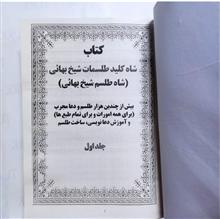 کتاب
شاه کلید طلسمات شیخ بهائی
(شاه طلسم شیخ بهائی)
بیش از چندین هزار طلسم و دعا مجرب
(برای همه امورات و برای تمام طبع ها)
و آموزش دعا نویسی، ساخت طلسم
جلد اول